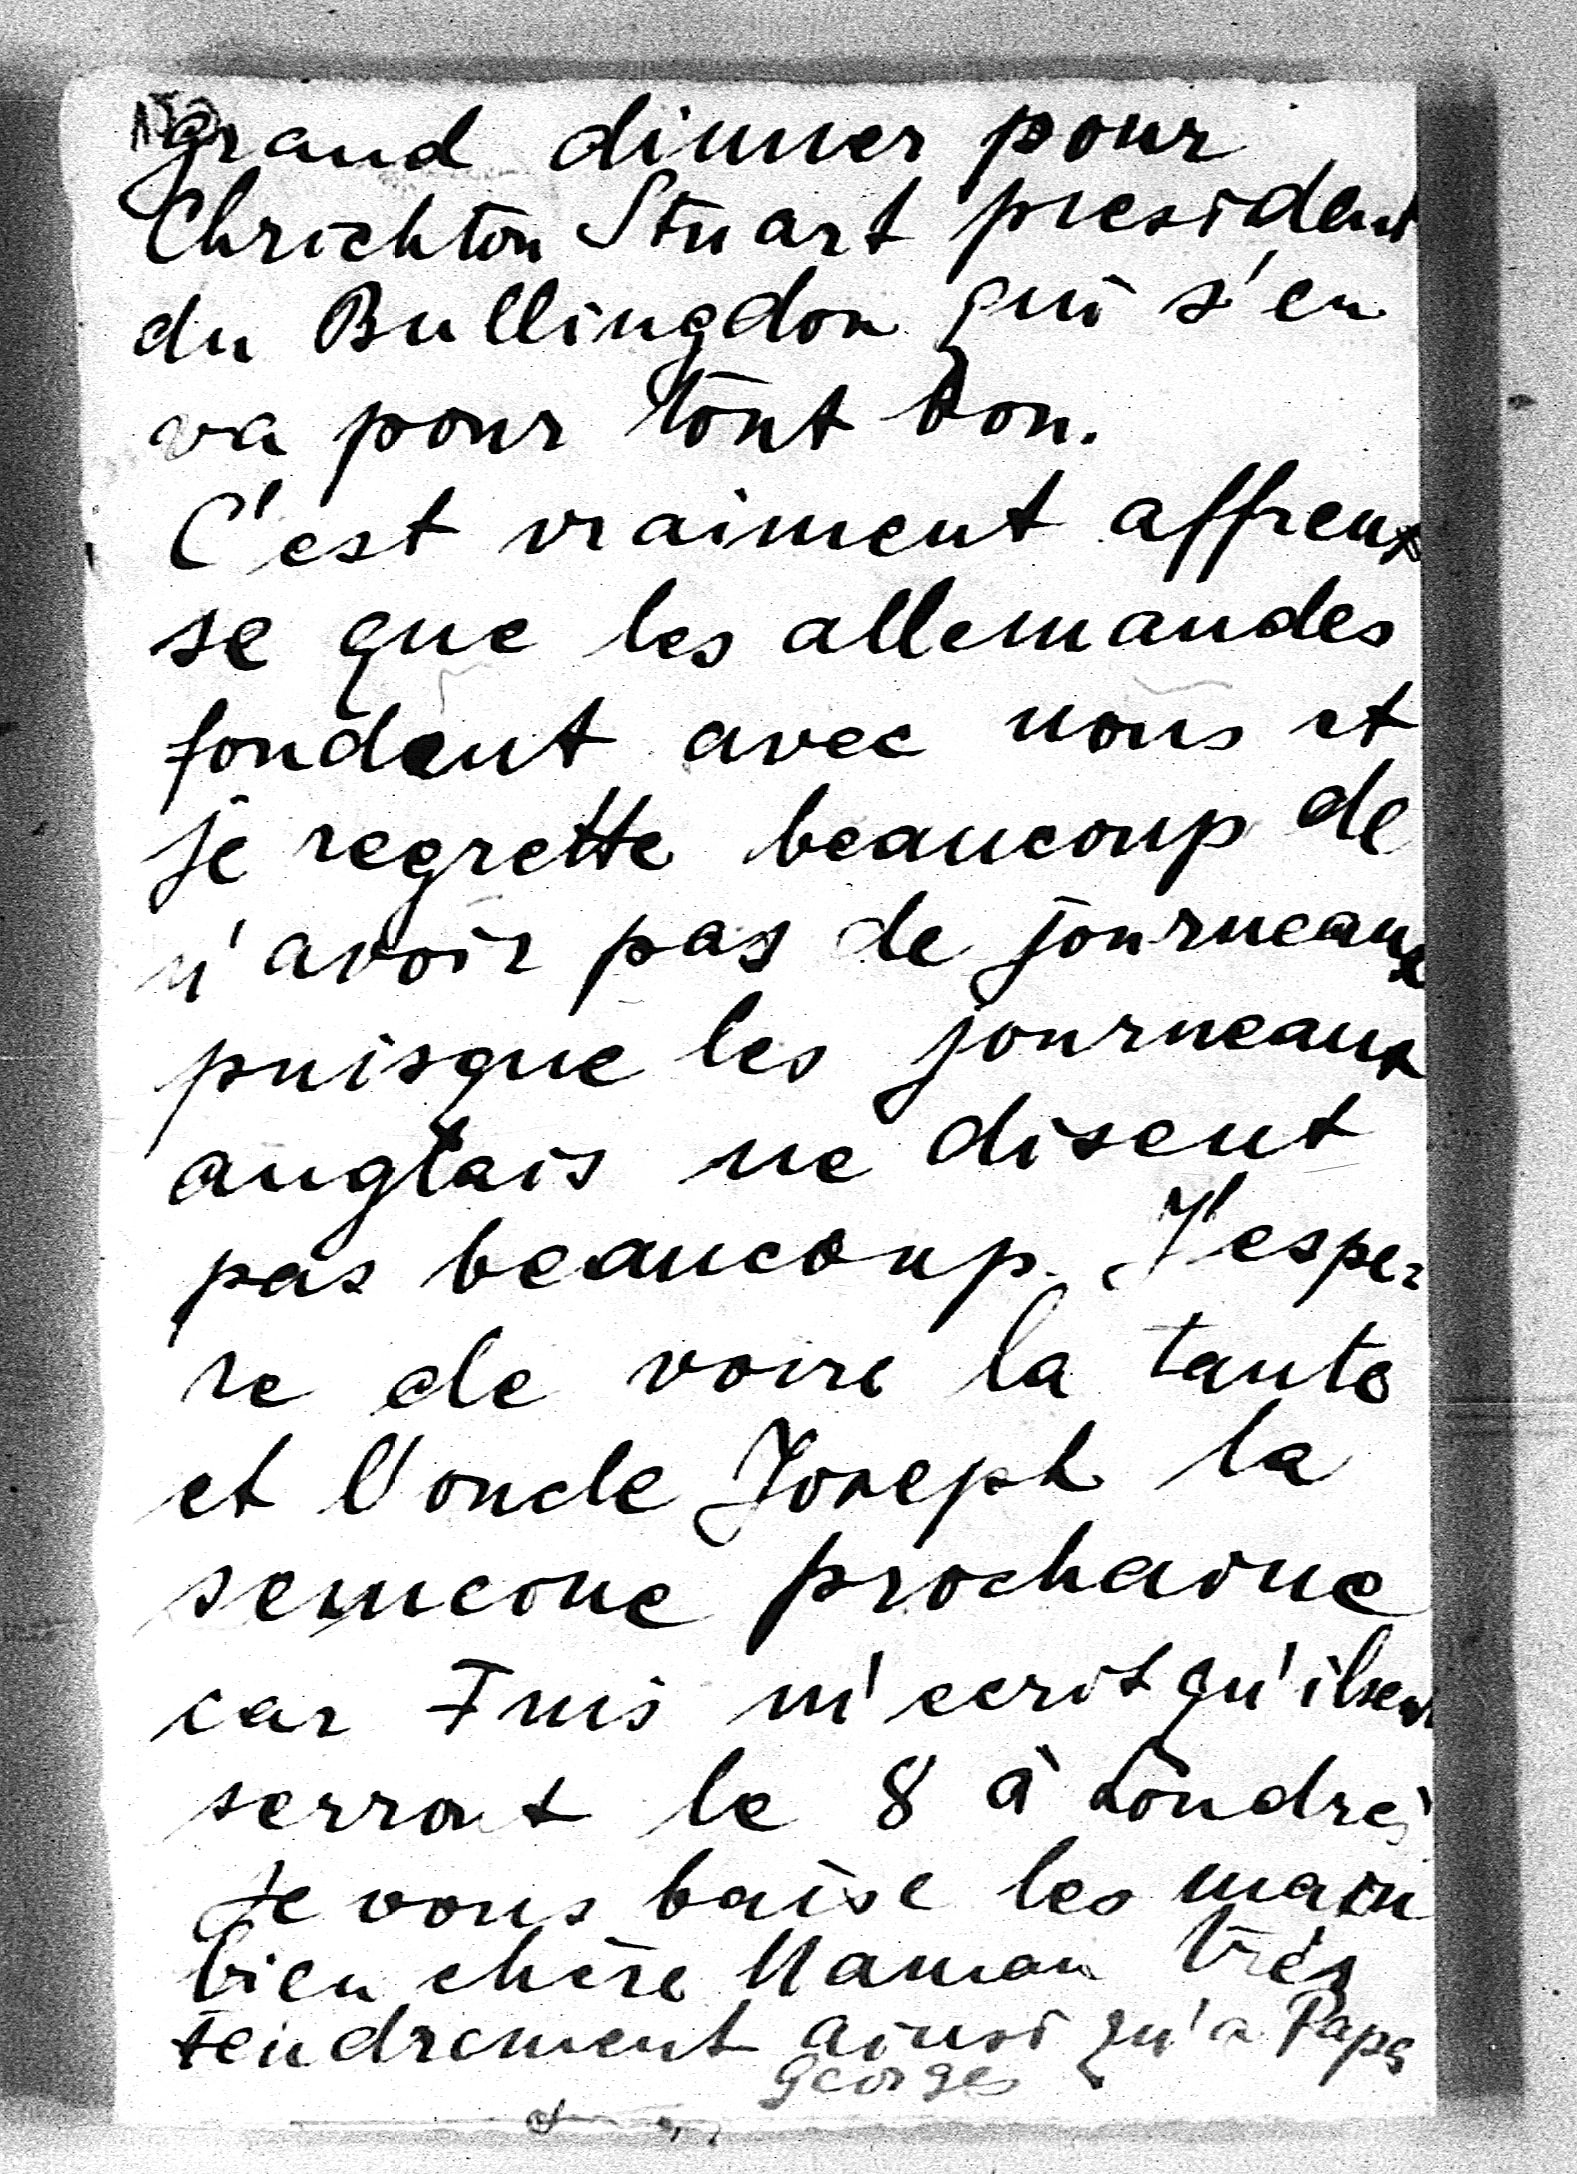 grand dinner pour
Chrichton Stuart president
du Bullingdon qui s'en
va pour tout bon.
C'est vraiment affreux
se que les allemandes
fondent avec nous et
je regrette beaucoup de
n'avoir pas de journeaux
puisque les journeaux
anglais ne disent
pas beaucoup. J'espe-
re de voire la tante
et l'oncle Joseph la
semeine prochaine
car m'ecrit qu'ils
serront le 8 à Londres
Je vous baise les main
bien chère Maman très
tendrement ainsi qu'a Papa
Georges